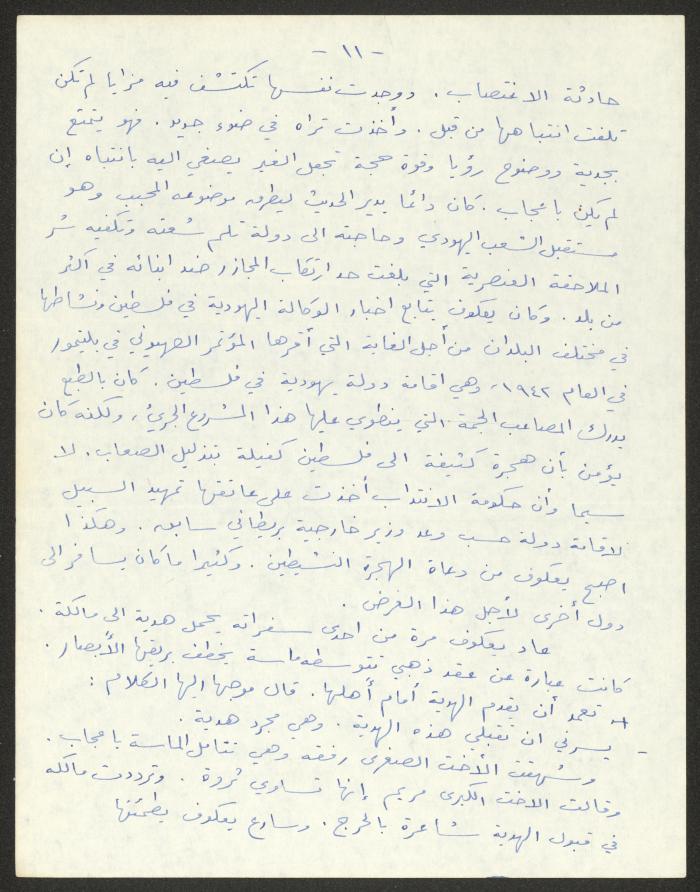 - ١١ -
حادثة الاغتصاب . ووجدت نفسها تكتشف فيه مزايا لم تكن
تلفت انتباهها من قبل . وأخذت تراه في ضوء جديد . فهو يتمتع
بجدية ووضوح رؤيا وقوة حجة تجعل الغير يصغي اليه بانتباه إن
لم يكن باعجاب . كان دائما يدير الحديث ليطرق موضوعه المحبب وهو
مستقبل الشعب اليهودي وحاجته الى دولة تلم شعثه وتكفيه شر
الملاحقة العنصرية التي بلغت حد ارتكاب المجازر ضد ابنائه في أكثر
من بلد . وكان يعكوف يتابع اخبار الوكالة اليهودية في فلسطين ونشاطها
في مختلف البلدان من أجل الغاية التي أقرها المؤتمر الصهيوني في بلتيمور
في العام ١٩٤٢، وهي اقامة دولة يهودية في فلسطين . كان بالطبع
يدرك المصاعب الجمة التي ينطوي عليها هذا المشروع الجريء، ولكنه كان
يؤمن بأن هجرة كثيفة الى فلسطين كفيلة بتذليل الصعاب . لا
سيما وأن حكومة الانتداب أخذت على عاتقها تمهيد السبيل
لاقامة دولة حسب وعد وزير خارجية بريطاني سابق . وهكذا
اصبح يعكوف من دعاة الهجرة النشيطين . وكثيرا ما كان يسافر الى
دول أخرى لأجل هذا الغرض .
عاد يعكوف مرة من احدى سفراته يحمل هدية الى مالكة .
كانت عبارة عن عقد ذهبي تتوسطه ماسة يخطف بريقها الأبصار .
تعمد أن يقدم الهدية أمام أهلها . قال موجها اليها الكلام :
- يسرني ان تقبلي هذه الهدية . وهي مجرد هدية .
وشهقت الأخت الصغرى رفقه وهي تتأمل الماسة باعجاب .
وقالت الاخت الكبرى مريم إنها تساوي ثروة . وترددت مالكه
في قبول الهدية شاعرة بالحرج . وسارع يعكوف يطمئنها